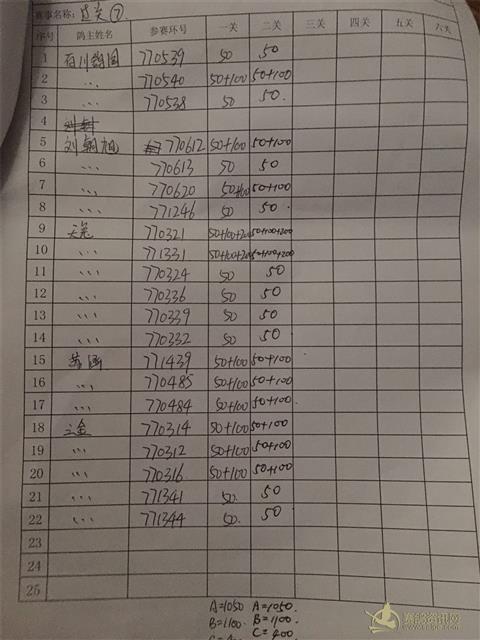 赛事名称: 过关 ⑦
序号 鸽主姓名 参赛环号 一关 二关 三关 四关 五关 六关
1 百川 770539 50 50
2 ... 770540 50+100 50+100
3 ... 770538 50 50.
4
5 刘朝旭 770612 50+100 50+100
6 ... 770613 50 50
7 ... 770620 50+100 50+100
8 ... 771246 50 50.
9 770321 50+100+200 50+100+200
10 ... 771331 50+100+200 50+100+200
11 ... 770324 50 50
12 ... 770336 50 50
13 ... 770339 50 50
14 ... 770332 50 50
15 771439 50+100 50+100
16 ... 770485 50+100 50+100
17 ... 770484 50+100 50+100
18 三金 770314 50+100 50+100
19 ... 770312 50+100 50+100
20 ... 770316 50+100 50+100
21 ... 771341 50. 50
22 ... 771344 50. 50
23
24
25
A=1050 A=1050.
B=1100. B=1100
C=400